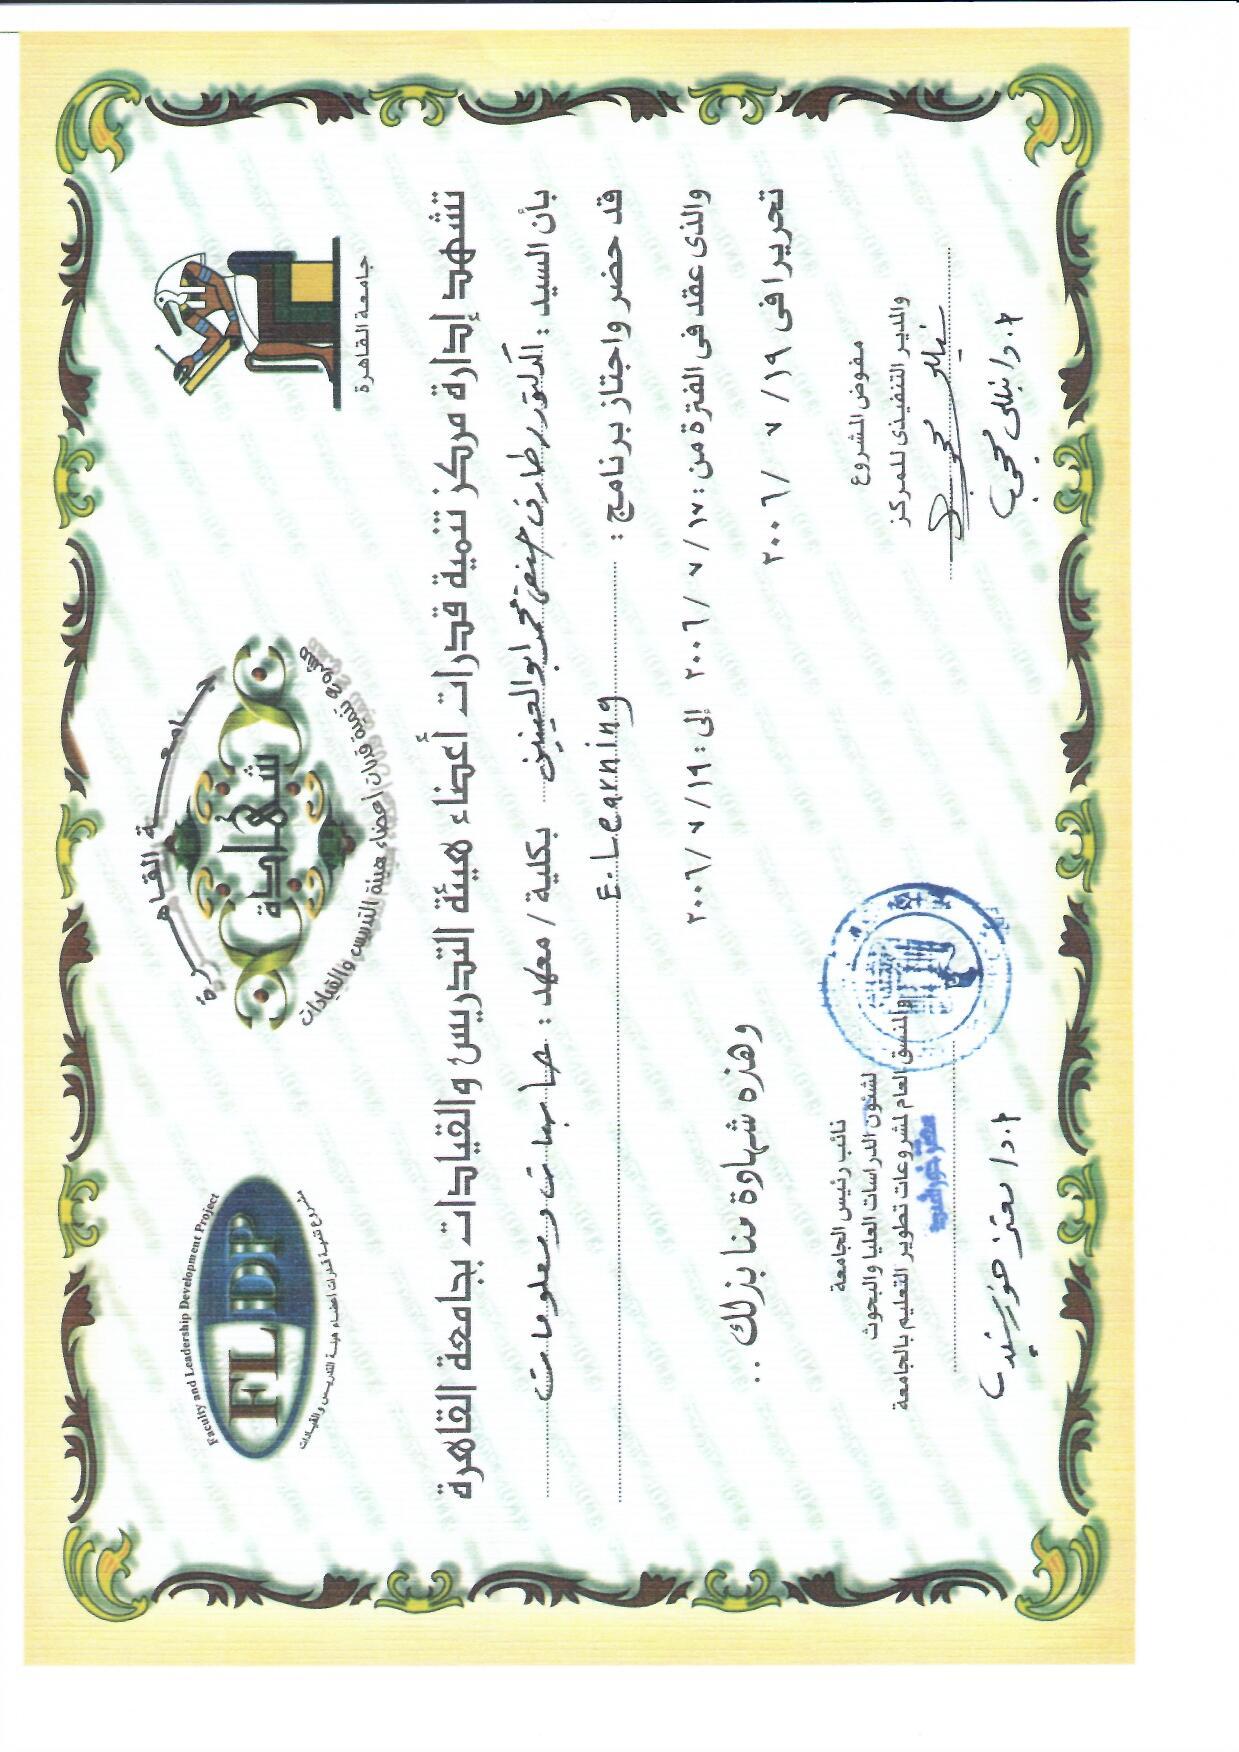 Faculty and Leadership Development Project
FLDP
مشروع تنمية قدرات أعضاء هيئة التدريس والقيادات
جامعة القاهرة
شهادة
مشروع تنمية قدرات أعضاء هيئة التدريس والقيادات
جامعة القاهرة
تشهد إدارة مركز تنمية قدرات أعضاء هيئة التدريس والقيادات بجامعة القاهرة
بأن السيد : الدكتور طارق حنفى محمد ابو العينين بكلية / معهد : حاسبات ومعلومات
قد حضر واجتاز برنامج : E. Learning
والذى عقد فى الفترة من : ١٧ / ٧ / ٢٠٠٦ إلى : ١٩ / ٧ / ٢٠٠٦
تحريرا فى ١٩ / ٧ / ٢٠٠٦ وهذه شهادة منا بذلك ..
مفوض المشروع
والمدير التنفيذى للمركز
نائب رئيس الجامعة
لشئون الدراسات العليا والبحوث
والمنسق العام لمشروعات تطوير التعليم بالجامعة
معتز خورشيد
أ.د/ معتز خورشيد